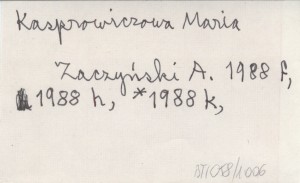 Kasprowiczowa Maria
Zaczyński A. 1988 f,
1988 h, *1988 k,